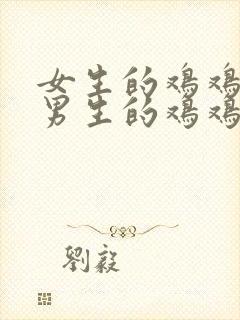 女生的鸡鸡
男生的鸡鸡
劉毅